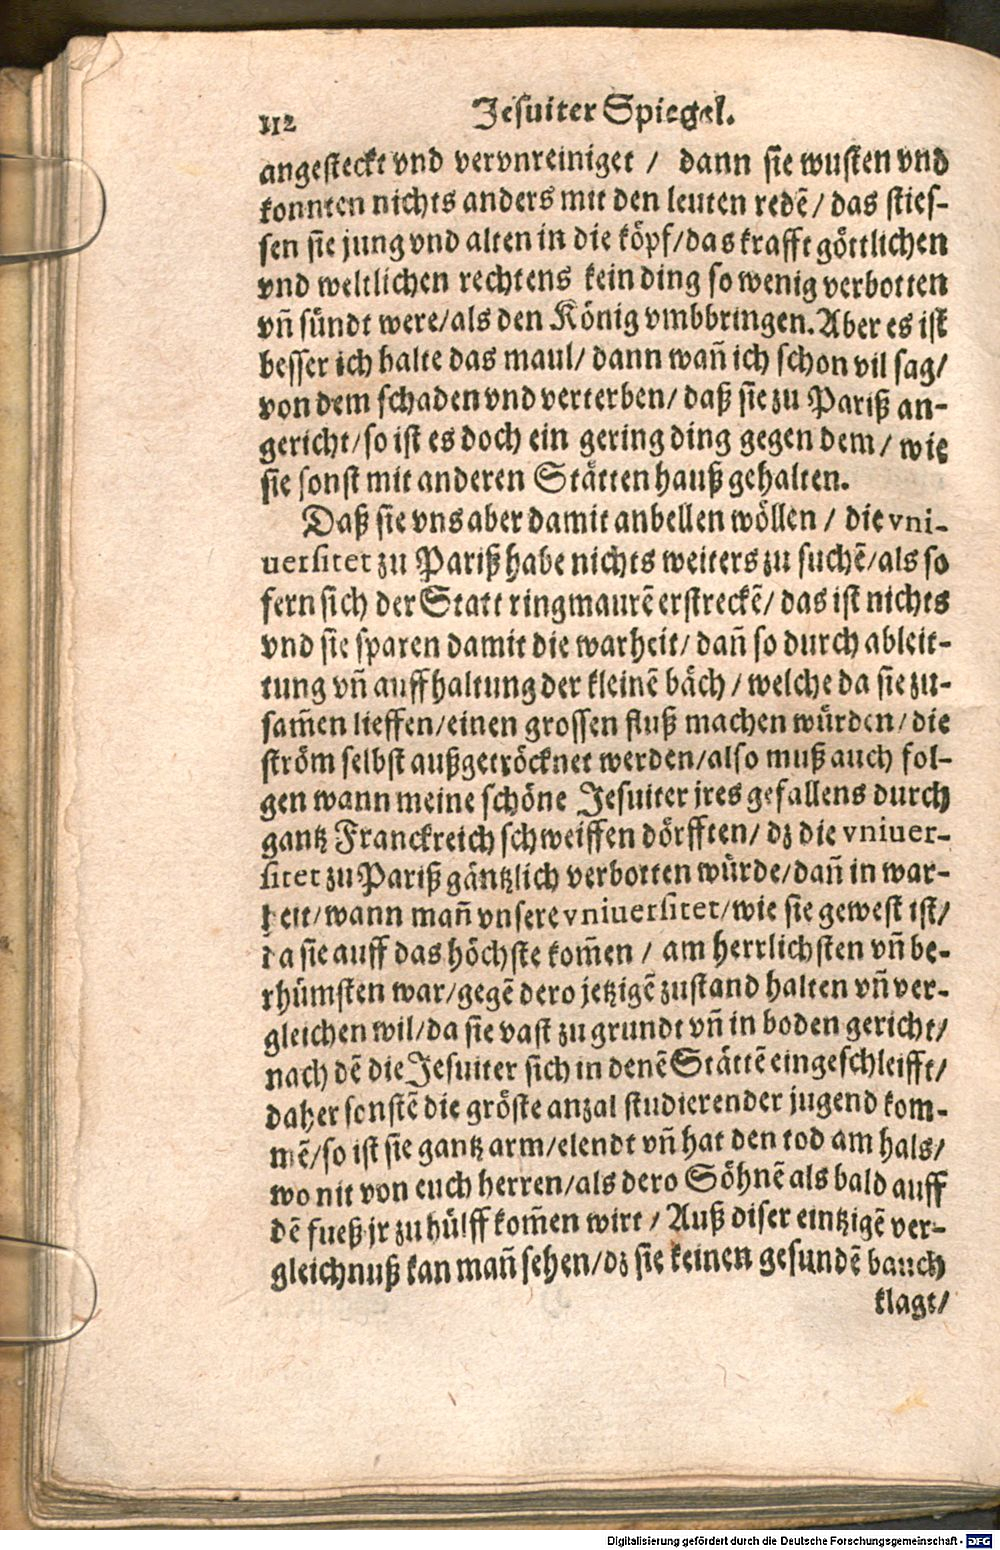 112
Jesuiter Spiegel.
angesteckt vnd vervnreiniget / dann sie wusten vnd
konnten nichts anders mit den leuten redē / das sties-
sen sie jung vnd alten in die köpf / das krafft göttlichen
vnd weltlichen rechtens kein ding so wenig verbotten
vn̄ sündt were / als den König vmbbringen. Aber es ist
besser ich halte das maul / dann wan̄ ich schon vil sag /
von dem schaden vnd verterben / daß sie zu Pariß an-
gericht / so ist es doch ein gering ding gegen dem / wie
sie sonst mit anderen Stätten hauß gehalten.
Daß sie vns aber damit anbellen wöllen / die vni-
uersitet zu Pariß habe nichts weiters zu suchē / als so
fern sich der Statt ringmaurē erstreckē / das ist nichts
vnd sie sparen damit die warheit / dan̄ so durch ableit-
tung vn̄ auffhaltung der kleinē bäch / welche da sie zu-
sam̄en lieffen / einen grossen fluß machen würden / die
ström selbst außgetröcknet werden / also muß auch fol-
gen wann meine schöne Jesuiter jres gefallens durch
gantz Franckreich schweiffen dörfften / dz die vniuer-
sitet zu Pariß gäntzlich verbotten würde / dan̄ in war-
heit / wann man̄ vnsere vniuersitet / wie sie gewest ist /
da sie auff das höchste kom̄en / am herrlichsten vn̄ be-
rhümsten war / gegē dero jetzigē zustand halten vn̄ ver-
gleichen wil / da sie vast zu grundt vn̄ in boden gericht /
nach dē die Jesuiter sich in denē Stättē eingeschleifft /
daher sonstē die gröste anzal studierender jugend kom-
mē / so ist sie gantz arm / elendt vn̄ hat den tod am hals /
wo nit von euch herren / als dero Söhnē als bald auff
dē fueß jr zu hülff kom̄en wirt / Auß diser eintzigē ver-
gleichnuß kan man̄ sehen / dz sie keinen gesundē bauch
klagt /
Digitalisierung gefördert durch die Deutsche Forschungsgemeinschaft - DFG